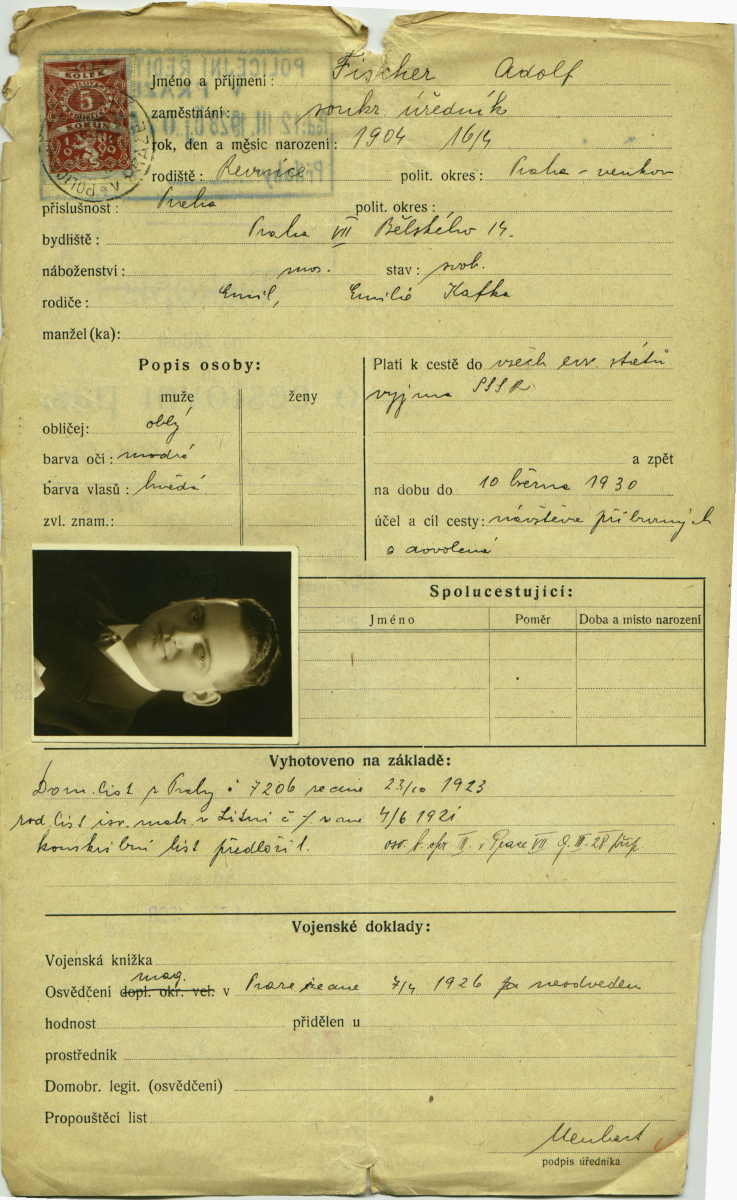 KOLEK
5
KORUN
POLICEJNÍ ŘEDIT
12. III. 1928
Jméno a příjmení: Fischer Adolf
zaměstnání: soukr. úředník
rok, den a měsíc narození: 1904 16/4
rodiště: Revnice polit. okres: Praha - venkov
příslušnost: Praha polit. okres:
bydliště: Praha VII Bělského 14.
náboženství: mos. stav: svob.
rodiče: Emil, Emilie Kafka
manžel(ka):
Popis osoby:
muže ženy
obličej: oblý
barva očí: modrá
barva vlasů: hnědá
zvl. znam.:
Platí k cestě do všech evr. států
vyjma SSSR
a zpět
na dobu do 10 března 1930
účel a cíl cesty: návštěva příbuzných
a dovolená
Spolucestující:
Jméno Poměr Doba a místo narození
Vyhotoveno na základě:
Dom. list z Prahy č 7206 ze dne 23/10 1923
rod. list isr. matr. v Litni č 7 ze dne 4/6 1921
konskribní list předložil.
Vojenské doklady:
Vojenská knížka
mag.
Osvědčení dopl. okr. vel. v Praze ze dne 7/4 1926 neodveden
hodnost přidělen u
prostředník
Domobr. legit. (osvědčení)
Propouštěcí list
podpis úředníka